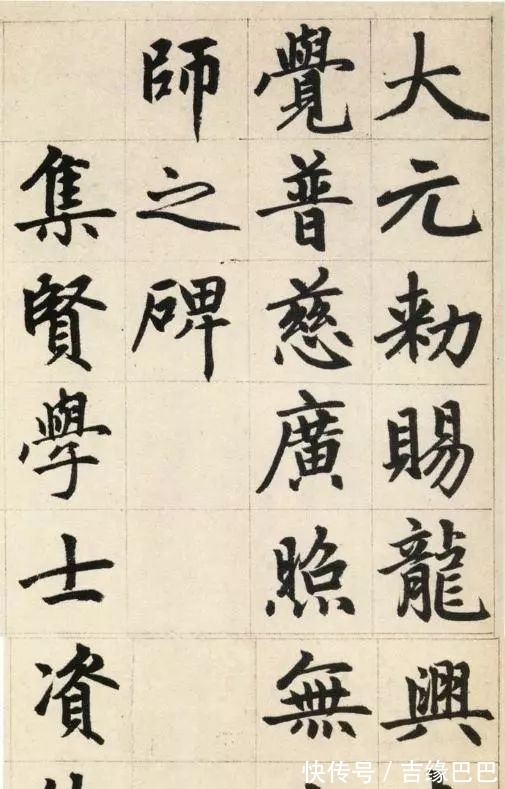 大元勑賜龍興
覺普慈廣照無
師之碑
集賢學士資
快传号/吉缘巴巴